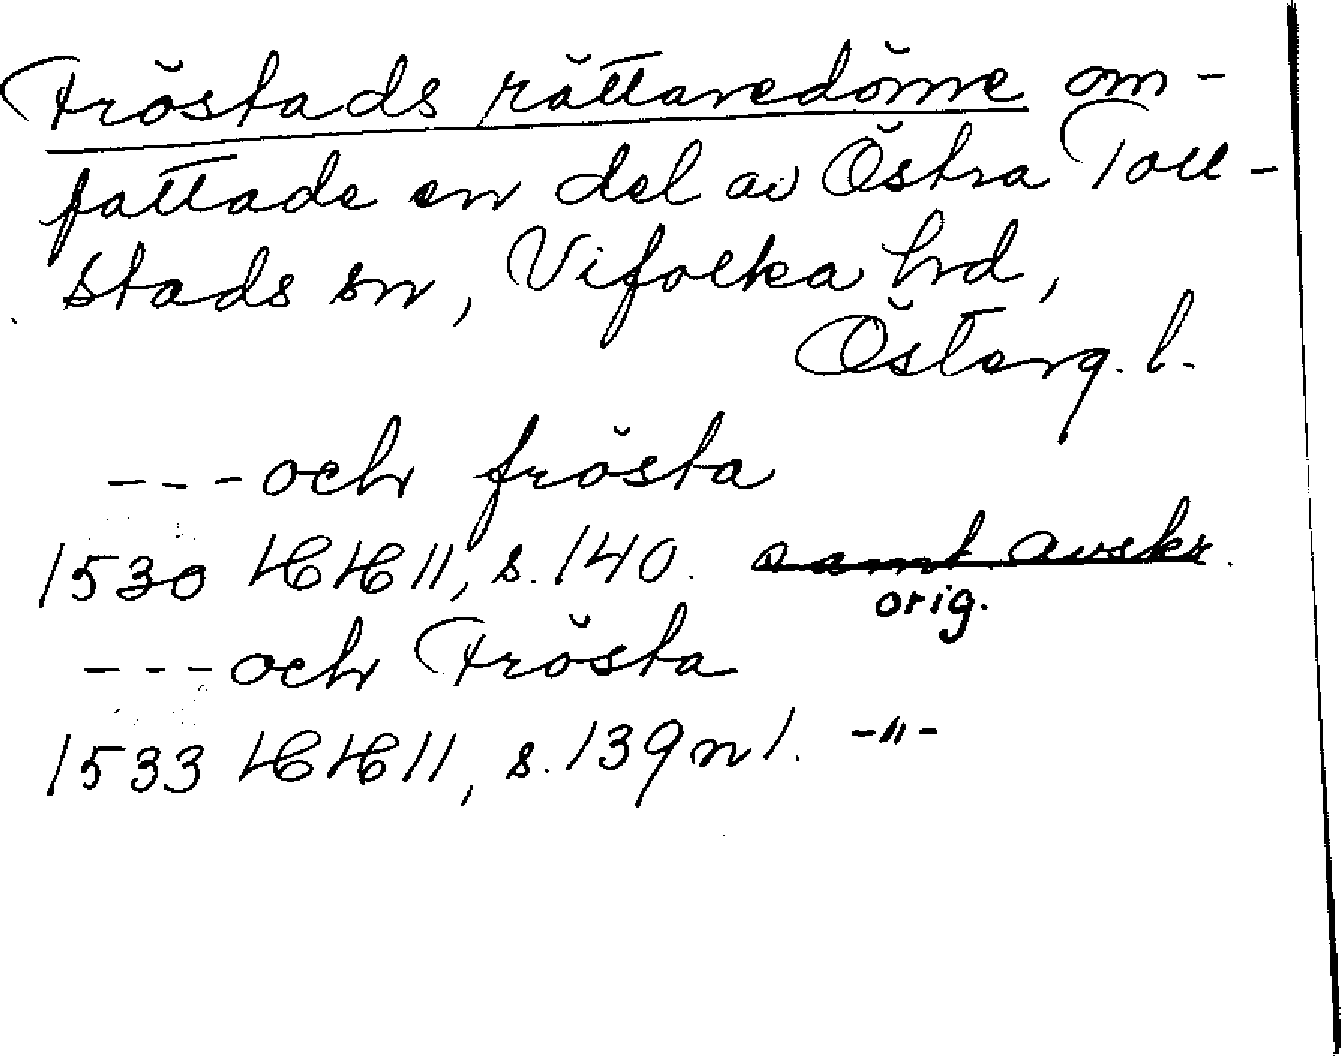 Fröstads rättaredöme om-
fattade en del av Östra Toll-
stads sn, Vifolka hd,
Österg. l.
---och frösta
1530 HH 11, s. 140. samt. avskr.
orig.
---och Frösta
1533 HH 11, s. 139 n 1. -"-